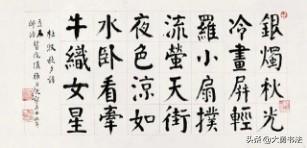 銀燭秋光
冷畫屏輕
羅小扇撲
流螢天街
夜色涼如
水卧看牽
牛織女星
杜牧秋夕詩
头条@大勇书法